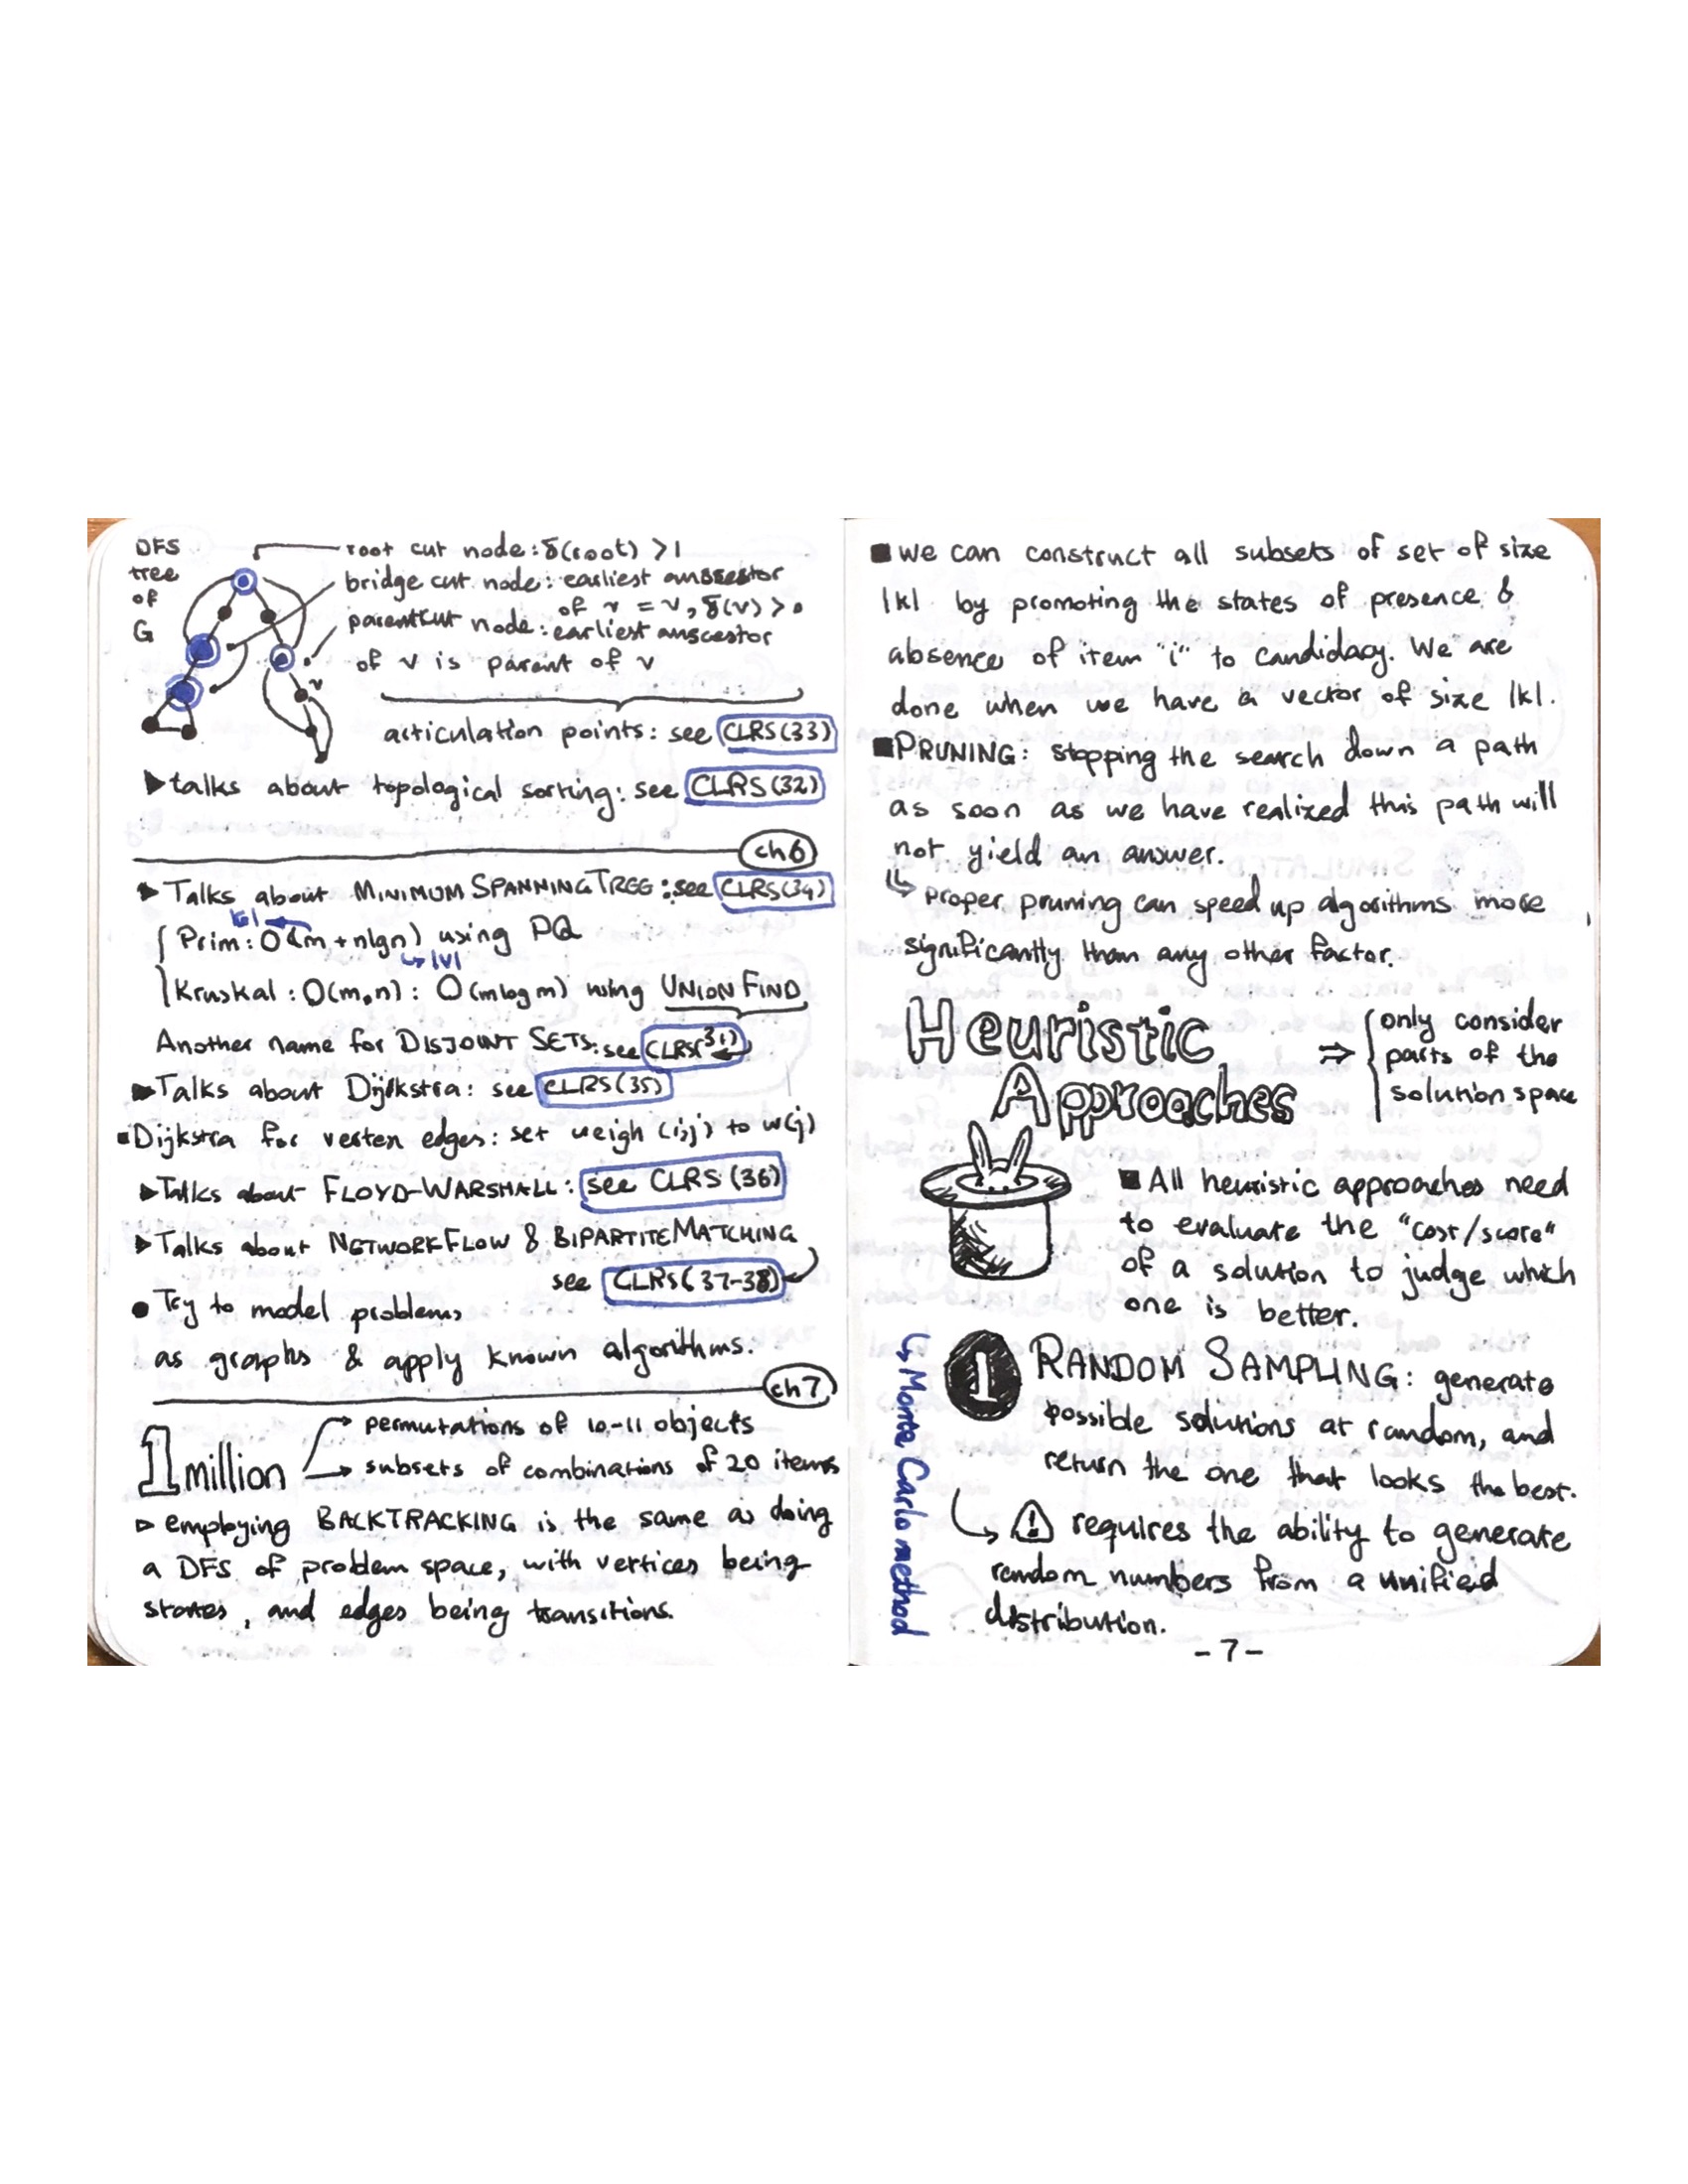 DFS
tree
of
G
root cut node: δ(root) >1
bridge cut node: earliest
of v = v, δ(v) > 0
parent cut node: earliest anscestor
of v is parent of v
v
articulation points: see CLRS(33)
talks about topological sorting: see CLRS(32)
ch6
Talks about MINIMUM SPANNING TREE: see CLRS(34)
|E|
Prim: O(m + nlgn) using PQ
|V|
Kruskal: O(m,n): O(mlogm) using UNION FIND
Another name for DISJOINT SETS: see CLRS(31)
Talks about Dijkstra: see CLRS(35)
Dijkstra for vertex edges: set weigh (i,j) to w(j)
Talks about FLOYD-WARSHALL: see CLRS (36)
Talks about NETWORKFLOW & BIPARTITE MATCHING
see CLRS(37-38)
Try to model problems
as graphs & apply known algorithms.
ch7
1 million
permutations of 10-11 objects
subsets of combinations of 20 items
employing BACKTRACKING is the same as doing
a DFS of problem space, with vertices being
states, and edges being transitions.
we can construct all subsets of set of size
|k| by promoting the states of presence &
absence of item "i" to candidacy. We are
done when we have a vector of size |k|.
PRUNING: stopping the search down a path
as soon as we have realized this path will
not yield an answer.
↳ proper pruning can speed up algorithms more
significantly than any other factor.
Heuristic
Approaches
⇒ only consider
parts of the
solution space
All heuristic approaches need
to evaluate the "cost/score"
of a solution to judge which
one is better.
1 RANDOM SAMPLING: generate
possible solutions at random, and
return the one that looks the best.
↳ Monte Carlo method
requires the ability to generate
random numbers from a unified
distribution.
-7-